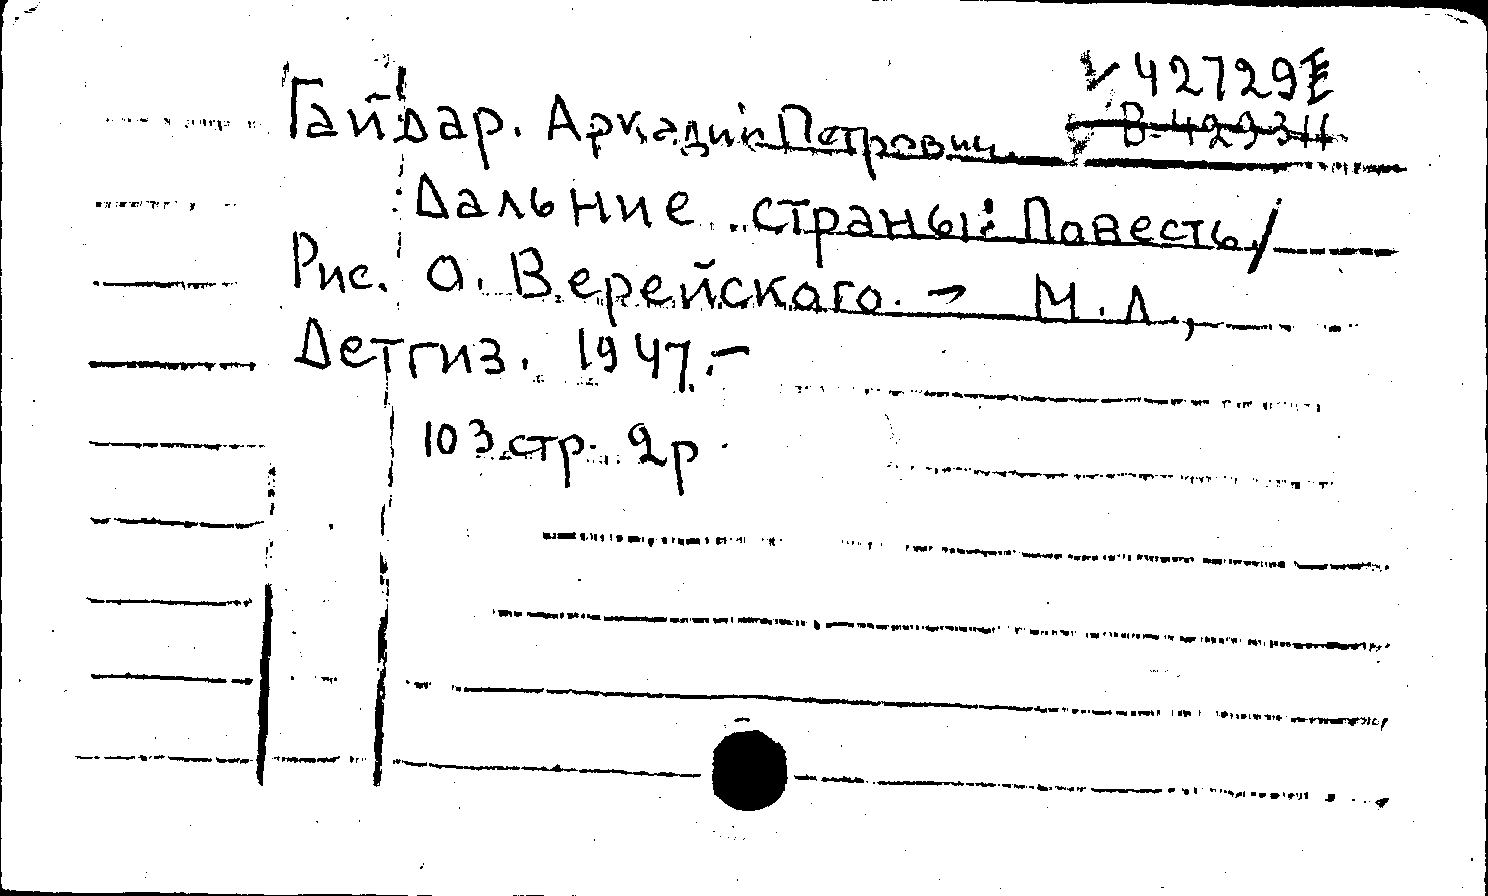 V 42729E
Гайдар. Аркадий Петрович. В-429311
Дальние страны: Повесть. /
Рис. О. Верейского. - М.Л.,
Детгиз. 1947.-
103 стр. 2р.